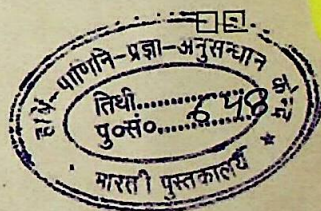 पाणिनि-प्रज्ञा-अनुसन्धान
तिथी..............
पु०सं०.... 548
भारती पुस्तकालय